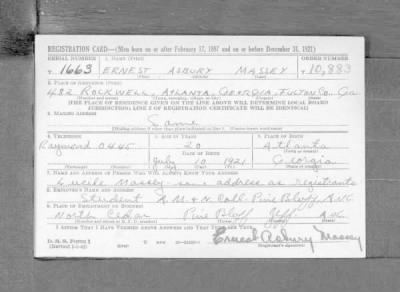 REGISTRATION CARD—(Men born on or after February 17, 1897 and on or before December 31, 1921)
SERIAL NUMBER 1. NAME (Print) ORDER NUMBER
T 1663 ERNEST ASBURY MASSEY T 10,883
(First) (Middle) (Last)
2. PLACE OF RESIDENCE (Print)
482 ROCKWELL, ATLANTA, GEORGIA, FULTON CO. Ga
(Number and street) (Town, township, village, or city) (County) (State)
[THE PLACE OF RESIDENCE GIVEN ON THE LINE ABOVE WILL DETERMINE LOCAL BOARD
JURISDICTION; LINE 2 OF REGISTRATION CERTIFICATE WILL BE IDENTICAL]
3. MAILING ADDRESS
Same
[Mailing address if other than place indicated on line 2. If same insert word same]
4. TELEPHONE 5. AGE IN YEARS 6. PLACE OF BIRTH
Raymond 0445 20 Atlanta
DATE OF BIRTH (Town or county)
July 10 1921 Georgia
(Exchange) (Number) (Mo.) (Day) (Yr.) (State or country)
7. NAME AND ADDRESS OF PERSON WHO WILL ALWAYS KNOW YOUR ADDRESS
Lucile Massey - same address as registrants
8. EMPLOYER'S NAME AND ADDRESS
Student A. M. & N. Coll. Pine Bluff, Ark
9. PLACE OF EMPLOYMENT OR BUSINESS
North Cedar Pine Bluff Jeff Ark
(Number and street or R. F. D. number) (Town) (County) (State)
I AFFIRM THAT I HAVE VERIFIED ABOVE ANSWERS AND THAT THEY ARE TRUE.
D. S. S. Form 1
Ernest Asbury Massey
(Registrant's signature)